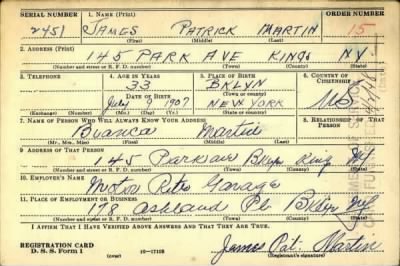 SERIAL NUMBER 1. NAME (Print) ORDER NUMBER
2451 JAMES PATRICK MARTIN 15
(First) (Middle) (Last)
2. ADDRESS (Print)
145 PARK AVE KINGS NY
(Number and street or R. F. D. number) (Town) (County) (State)
3. TELEPHONE 4. AGE IN YEARS 5. PLACE OF BIRTH 6. COUNTRY OF CITIZENSHIP
33 BKLYN
DATE OF BIRTH (Town or county)
July 9 1907 NEW YORK US
(Exchange) (Number) (Mo.) (Day) (Yr.) (State or country)
7. NAME OF PERSON WHO WILL ALWAYS KNOW YOUR ADDRESS 8. RELATIONSHIP OF THAT PERSON
Bianca Martin
(Mr., Mrs., Miss) (First) (Middle) (Last)
9. ADDRESS OF THAT PERSON
145 Park ave Bklyn King NY
(Number and street or R. F. D. number) (Town) (County) (State)
10. EMPLOYER'S NAME
Motor Garage
11. PLACE OF EMPLOYMENT OR BUSINESS
178 Ashland Pl Bklyn NY
(Number and street or R. F. D. number) (Town) (County) (State)
I AFFIRM THAT I HAVE VERIFIED ABOVE ANSWERS AND THAT THEY ARE TRUE.
REGISTRATION CARD
D. S. S. Form 1 (over) 16—17105 James Pat. Martin